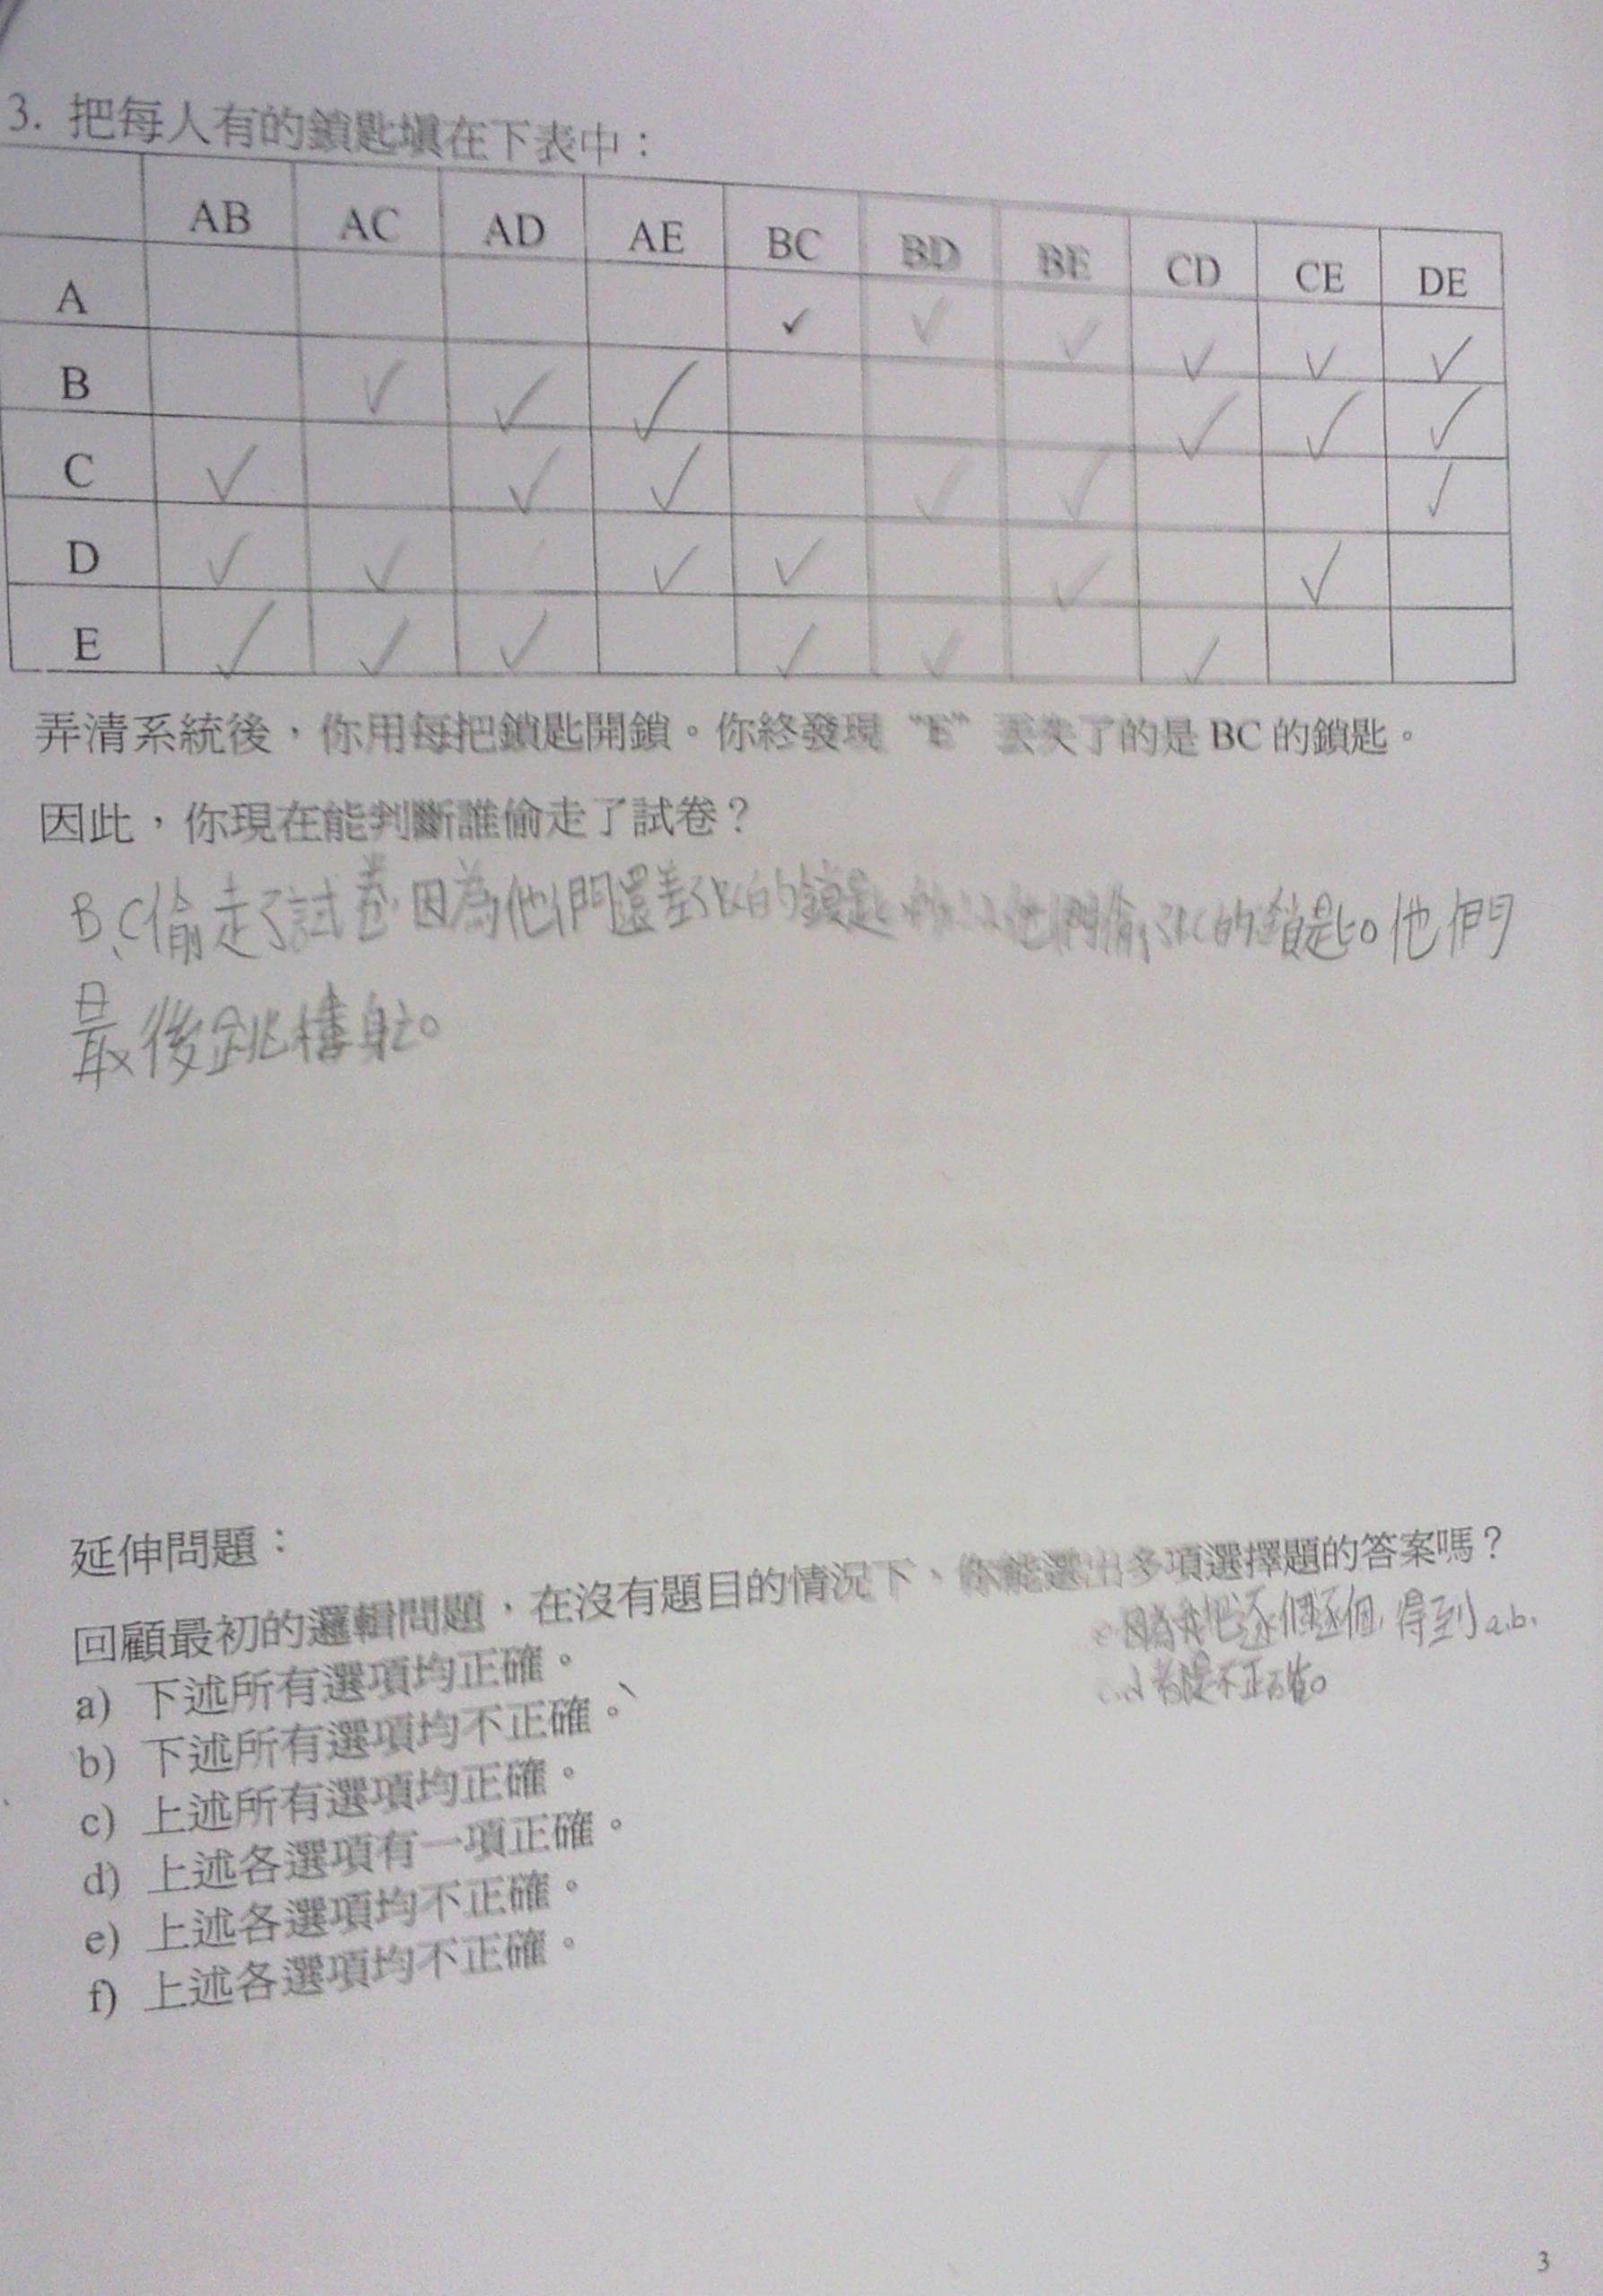 3. 把每人有的鎖匙填在下表中：
AB AC AD AE BC BD BE CD CE DE
A ✓ ✓ ✓ ✓ ✓ ✓
B ✓ ✓ ✓ ✓ ✓ ✓
C ✓ ✓ ✓ ✓ ✓ ✓
D ✓ ✓ ✓ ✓ ✓ ✓
E ✓ ✓ ✓ ✓ ✓ ✓
弄清系統後，你用每把鎖匙開鎖。你終發現“E”丟失了的是 BC 的鎖匙。
因此，你現在能判斷誰偷走了試卷？
B、C偷走了試卷，因為他們還差了BC的鎖匙，所以他們偷了BC的鎖匙。他們
最後跳樓
延伸問題：
回顧最初的邏輯問題，在沒有題目的情況下、你能選出多項選擇題的答案嗎？
因為我把逐個逐個，得到a.b.
都是不正確。
a) 下述所有選項均正確。
b) 下述所有選項均不正確。
c) 上述所有選項均正確。
d) 上述各選項有一項正確。
e) 上述各選項均不正確。
f) 上述各選項均不正確。
3